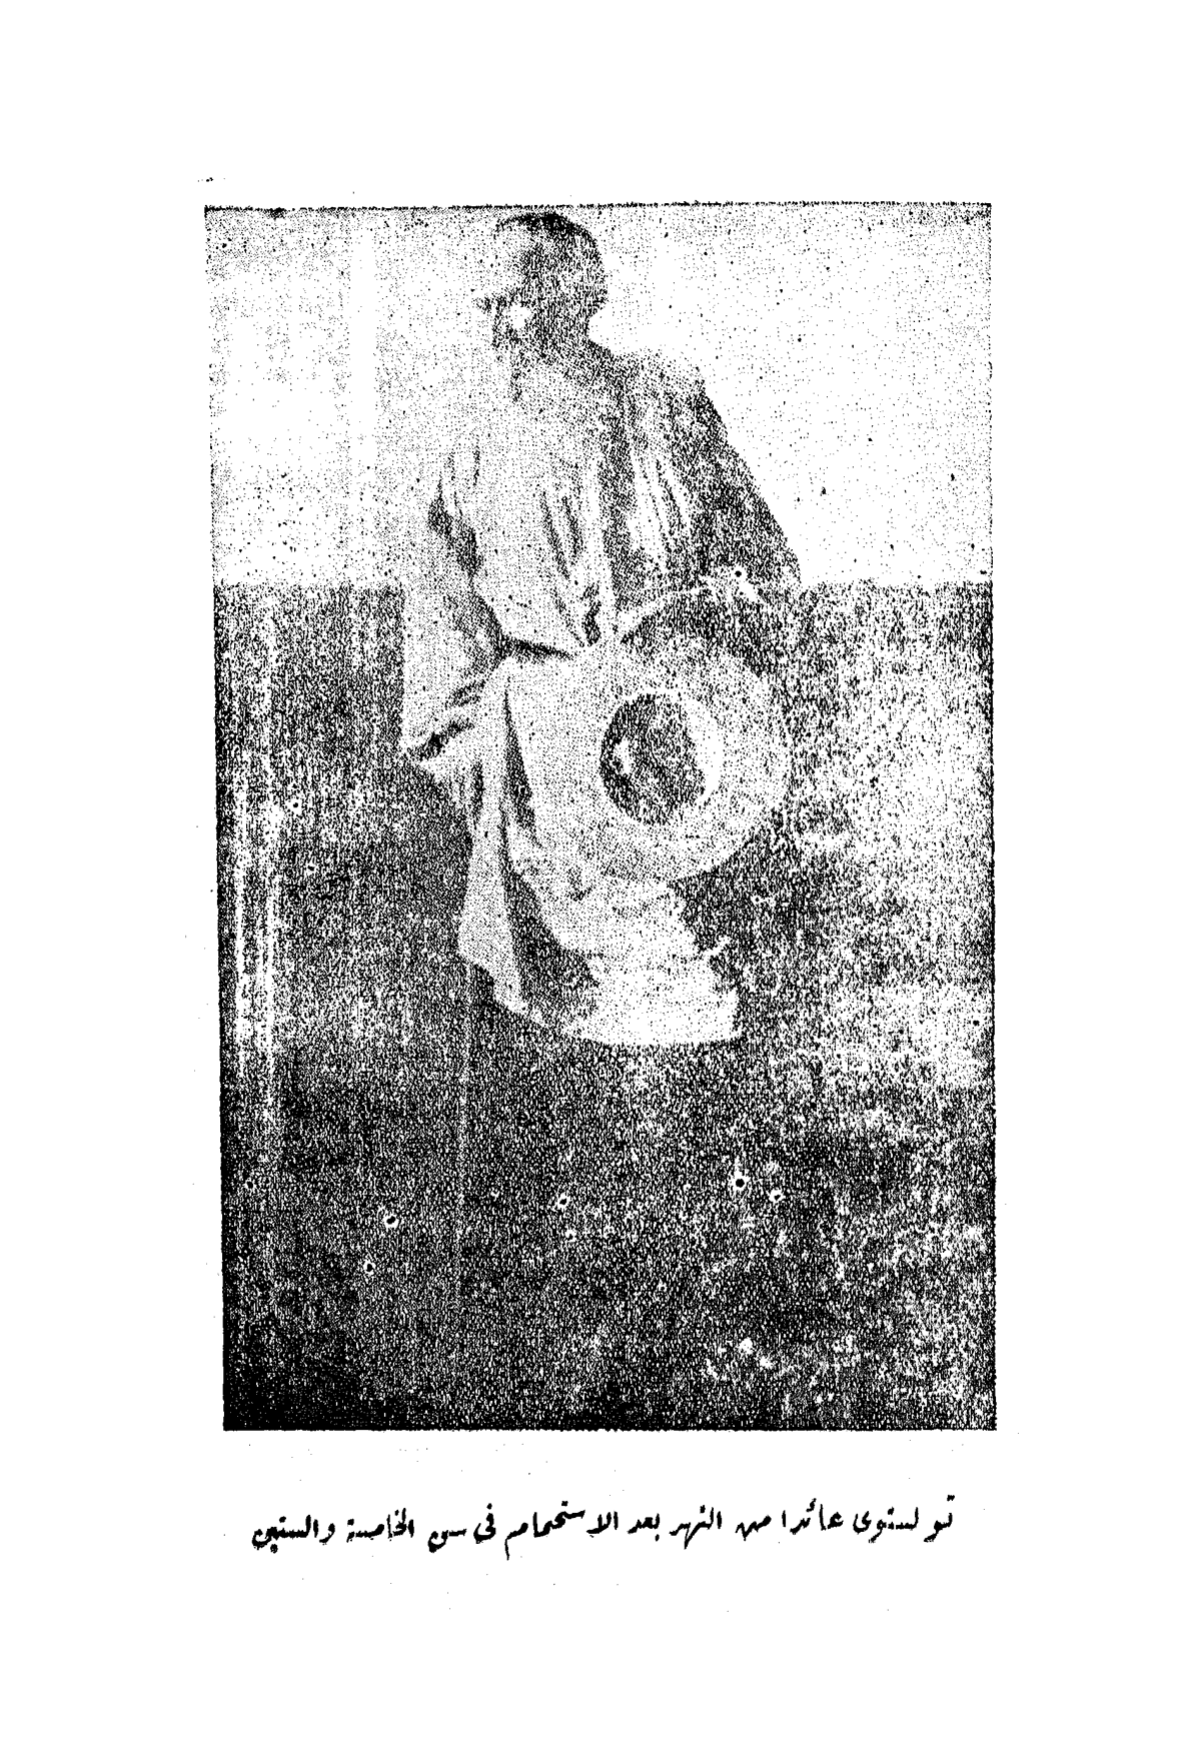 تولستوى عائدا من النهر بعد الاستحمام فى سن الخامسة والستين